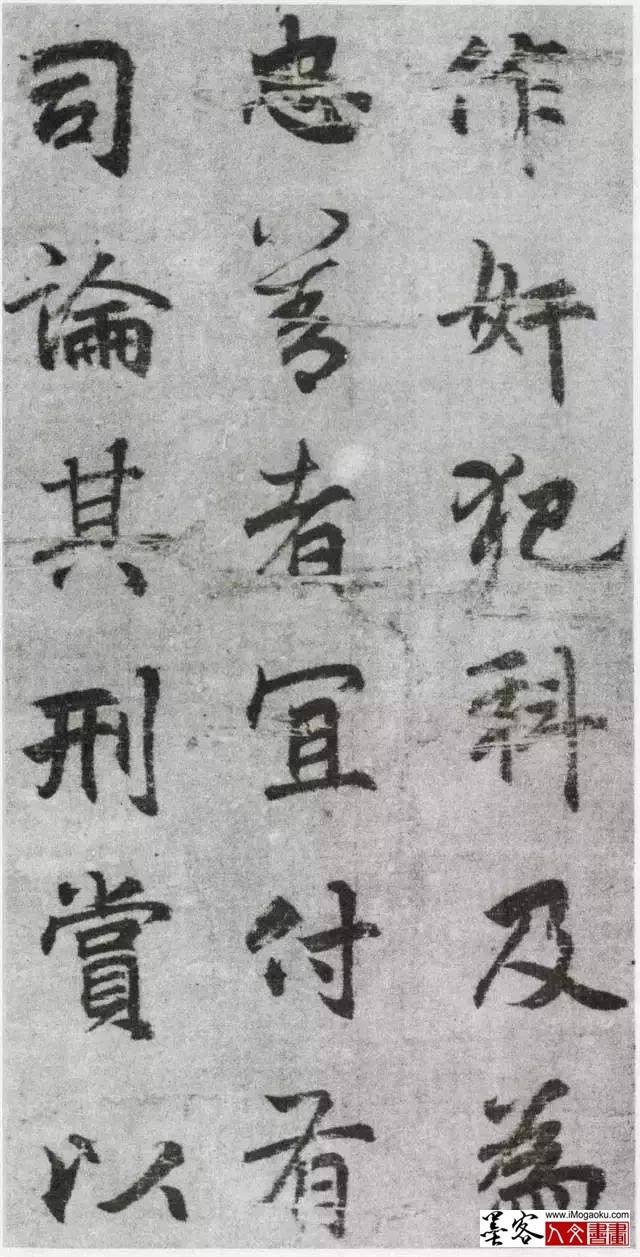 作奸犯科及為
忠善者宜付有
司論其刑賞以
墨客
www.iMogaoku.com
人文書畫